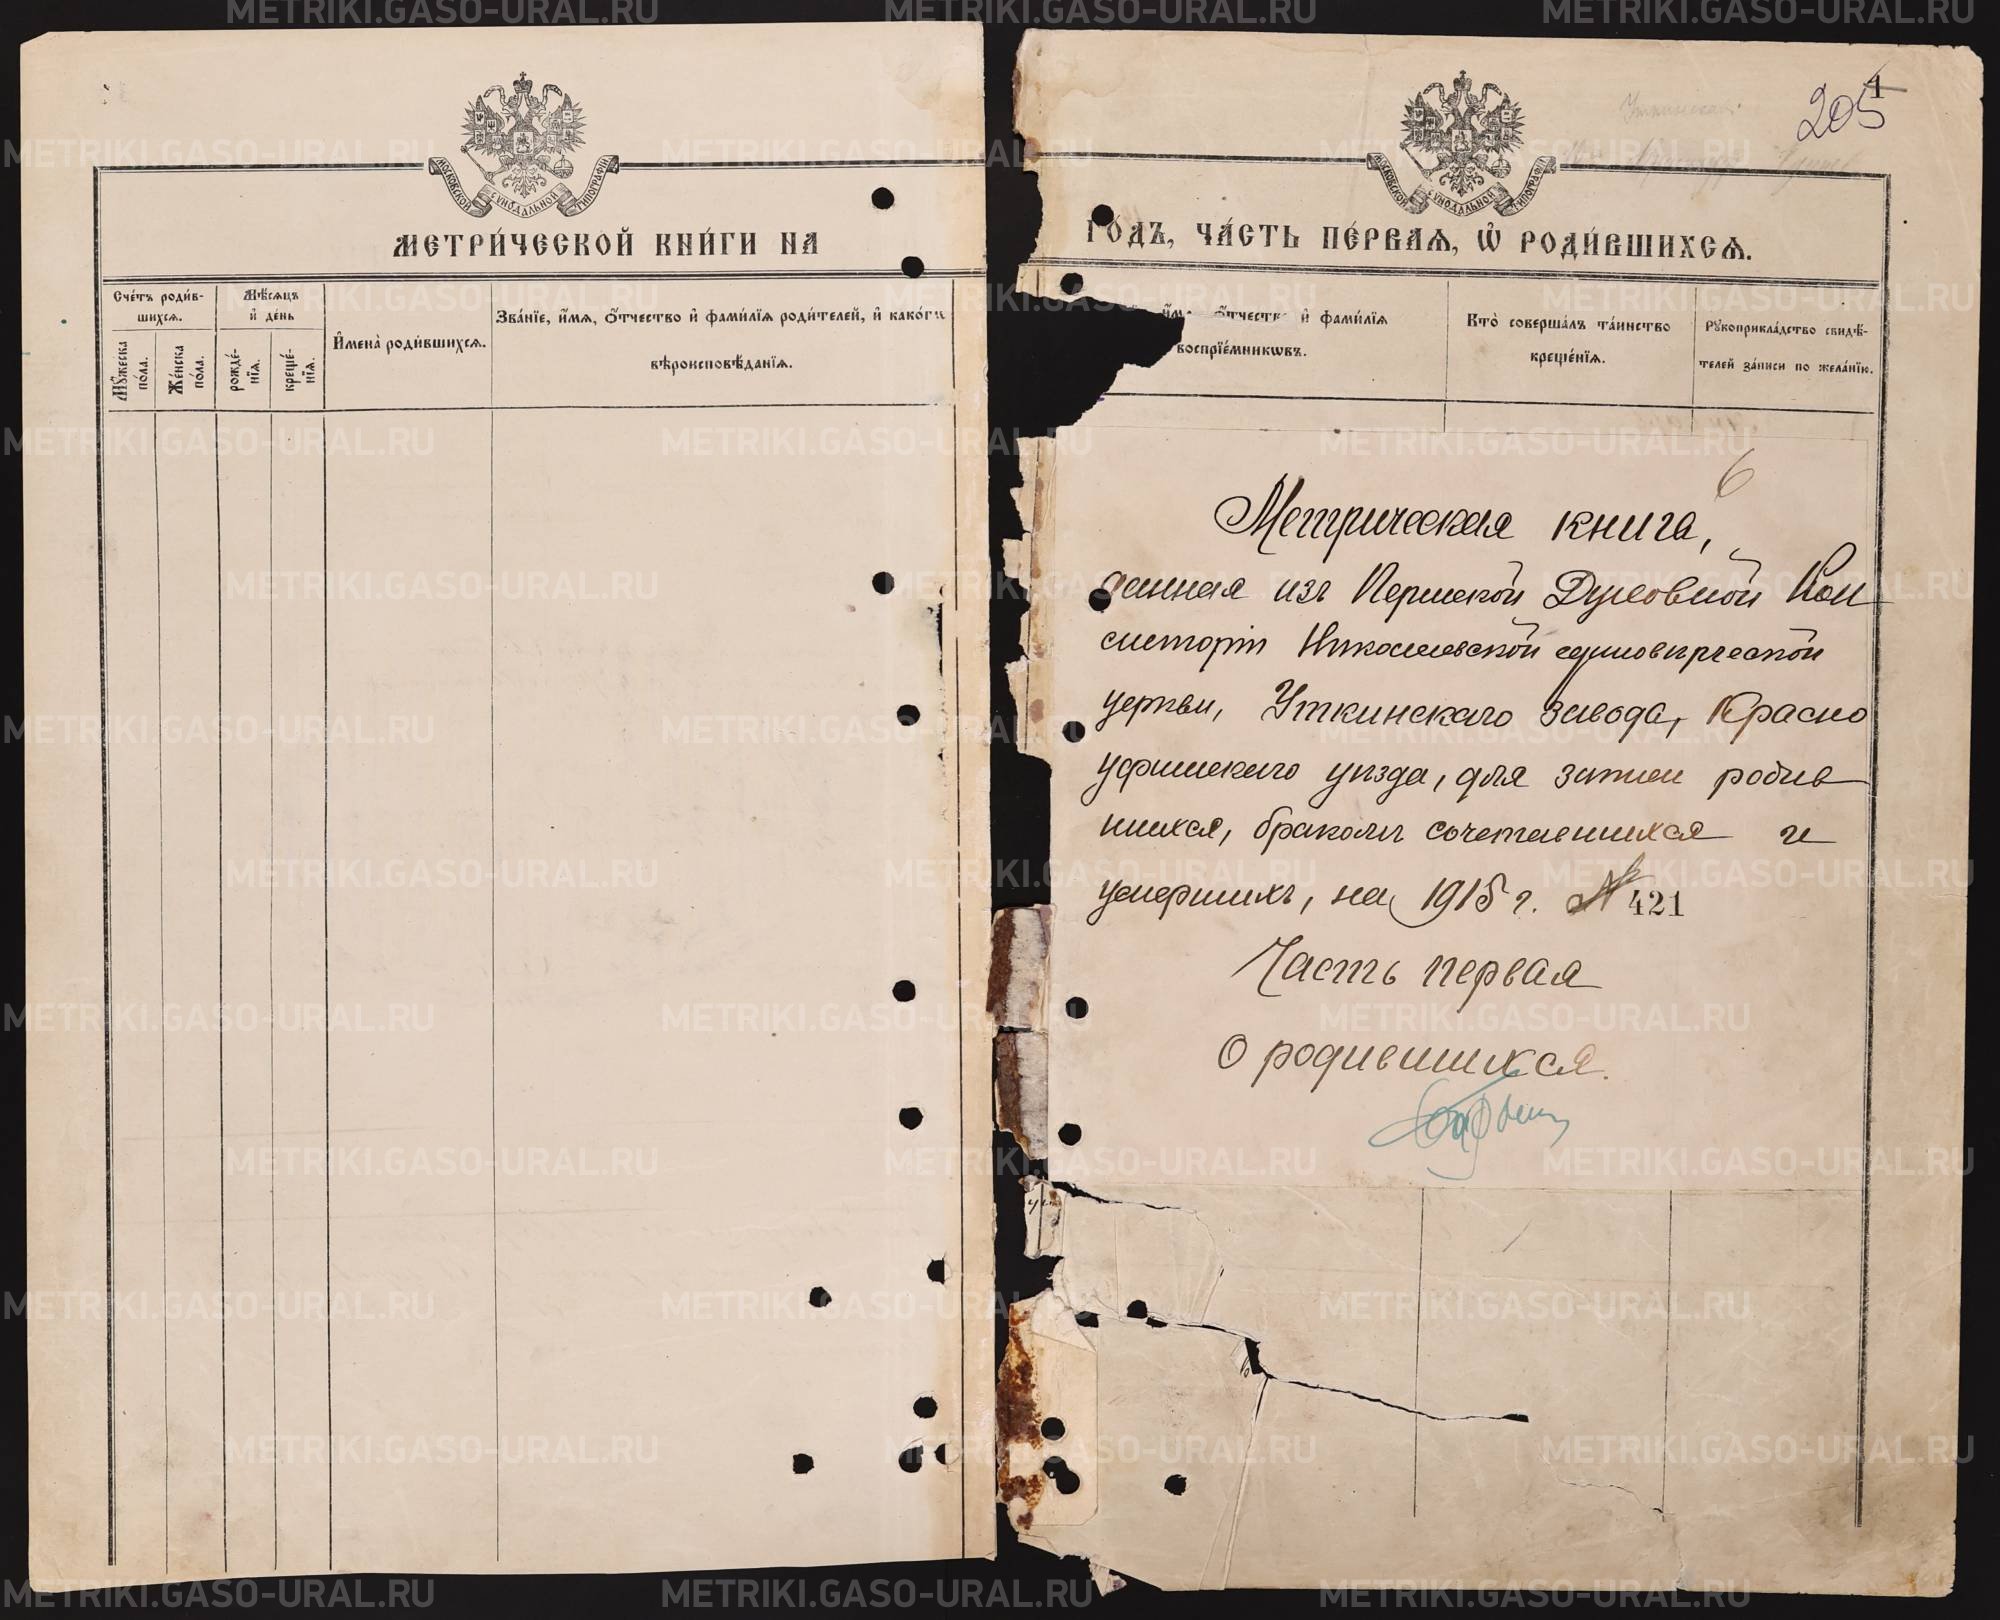 МОСКОВСКОЙ СѴНОДАЛЬНОЙ ТИПОГРАФІИ
МЕТРИ́ЧЕСКОЙ КНИ́ГИ НА
Сче́тъ роди́в-
шихсѧ.
Мѣ́сѧцъ
и҆ де́нь
Мꙋ́жеска
по́ла.
Же́нска
по́ла.
рожде́-
нїѧ.
креще́-
нїѧ.
И҆мена̀ роди́вшихсѧ.
Зва́нїе, и҆́мѧ, ѻ҆́тчество и҆ фами́лїѧ роди́телей, и҆ како́гѡ
вѣроисповѣ́данїѧ.
205
МОСКОВСКОЙ СѴНОДАЛЬНОЙ ТИПОГРАФІИ
ГО́ДЪ, ЧА́СТЬ ПЕ́РВАѦ, Ѡ҆ РОДИ́ВШИХСѦ.
и҆́мѧ, ѻ҆́тчество и҆ фами́лїѧ
воспрїе́мникѡвъ.
Кто̀ соверша́лъ та́инство
креще́нїѧ.
Рꙋкоприкла́дство свидѣ́-
телей за́писи по жела́нїю.
6
Метрическая книга,
данная изъ Пермской Духовной Кон
систоріи Николаевской единовѣрческой
церкви, Уткинскаго завода, Красно
уфимскаго уѣзда, для записи родив
шихся, бракомъ сочетавшихся и
умершихъ, на 1915 г. № 421
Часть первая
О родившихся.
METRIKI.GASO-URAL.RU